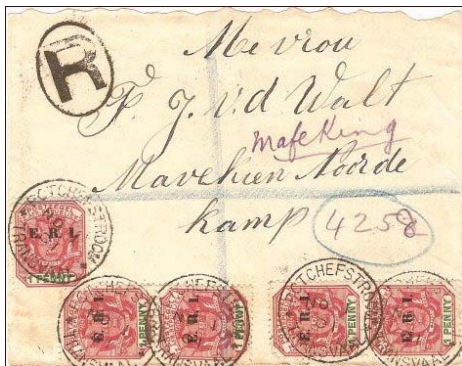 R
Mevrou
F. J. v. d Walt
Mafeking
Mavekien Noorde
kamp 4258
POTCHEFSTROOM
TRANSVAAL
E.R.I.
1 PENNY
E.R.I.
PENNY
E.R.I.
PENNY
TRANSVAAL
POTCHEFSTROOM
E.R.I.
PENNY
E.R.I.
1 PENNY
TRANSVAAL